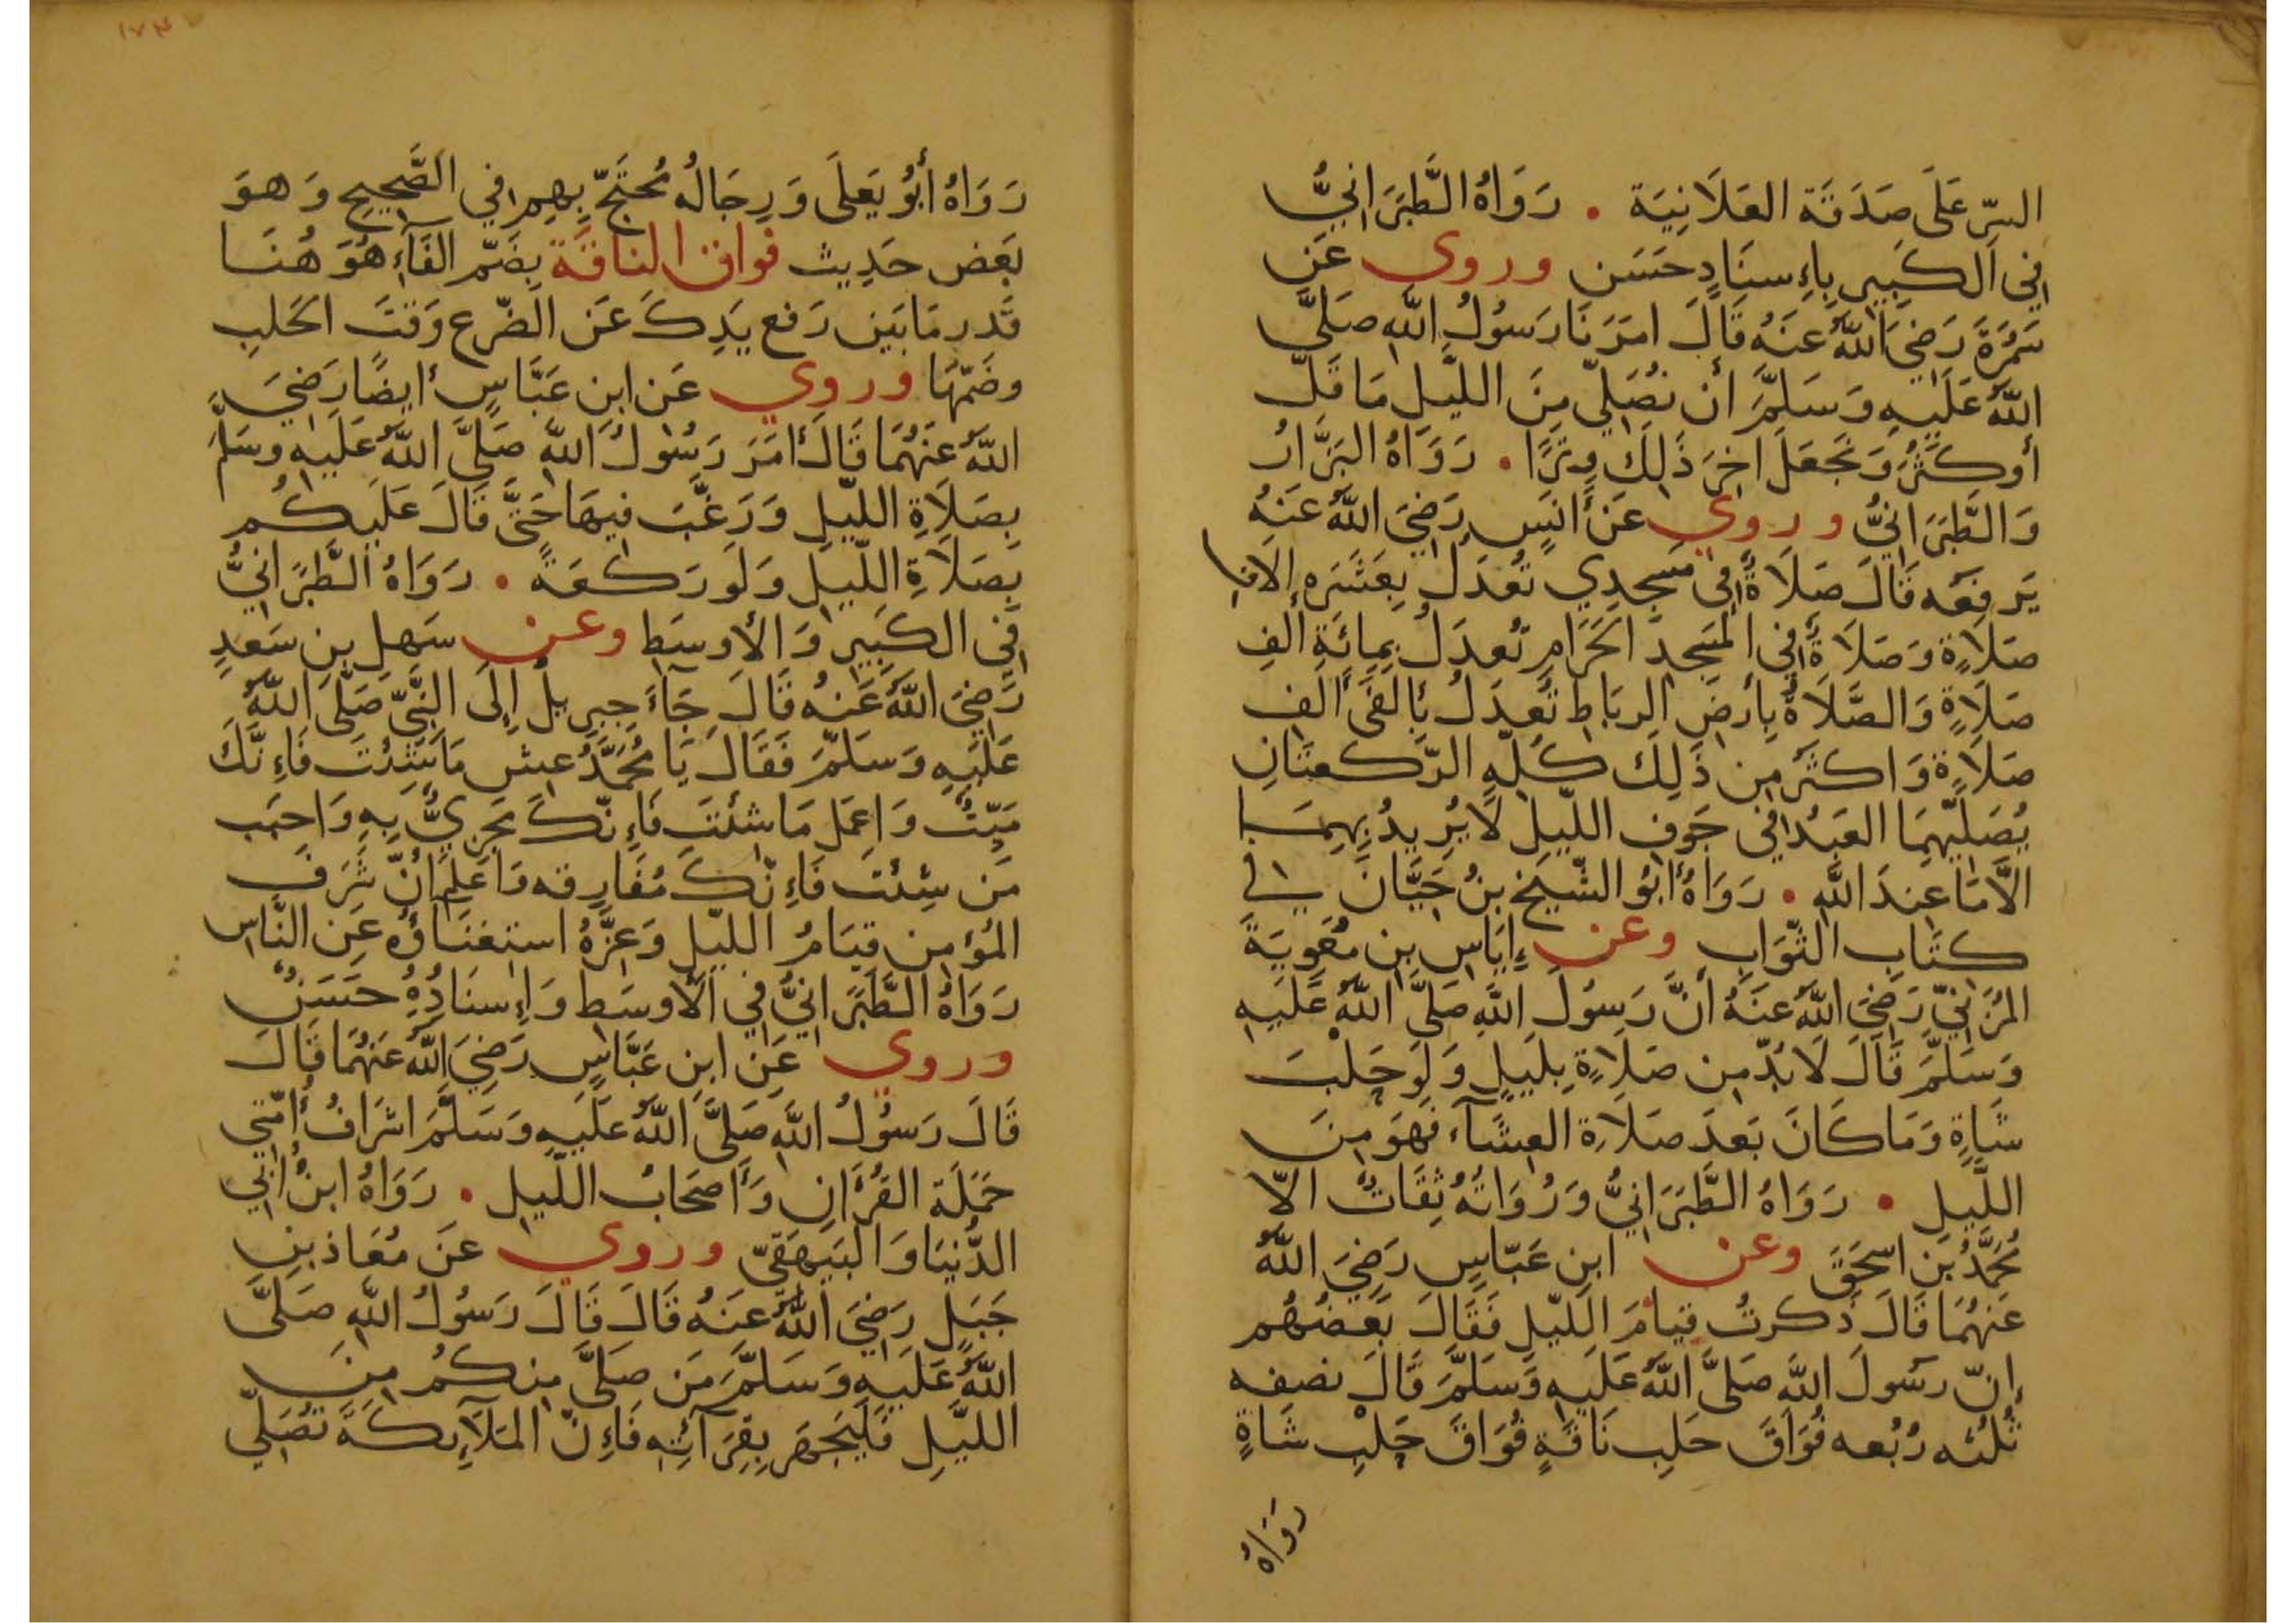 السِّرّ عَلَى صَدَقَة العَلَانِيَة . رَوَاهُ الطَّبَرَانِيُّ
فِي الكَبِيرِ بِإِسنَادٍ حَسَن وروي عَن
سَمُرَةَ رَضِيَ اللَّهُ عَنهُ قَالَ امَرَنَا رَسُولُ اللَّهِ صَلَّى
اللَّهُ عَلَيهِ وَسَلَّمَ أَن نُصَلِّيَ مِنَ اللَّيلِ مَا قَلَّ
أو كَثُرَ وَنَجعَلَ اخِرَ ذَلِكَ وِترًا . رَوَاهُ البَزَّارُ
وَالطَّبَرَانِيُّ وروي عَن أَنَسٍ رَضِيَ اللَّهُ عَنهُ
يَرفَعه قَالَ صَلَاةٌ فِي مَسجِدِي تُعدَلُ بِعَشَرَه إلَافِ
صَلَاةٍ وَصَلَاةٌ فِي المَسجِد الحَرَامِ تُعدَلُ بِمِائَةِ ألفِ
صَلَاةٍ وَالصَّلَاةُ بِأَرضِ الرِبَاطِ تُعدَلُ بِألفَي ألفِ
صَلَاةٍ وَاكثَرُ مِن ذَلِكَ كُلِّهِ الرَّكعَتَانِ
يُصَلِّيهِمَا العَبدُ فِي جَوفِ اللَّيلِ لَا يُرِيدُ بِهِمَا
الَّا مَا عِندَ اللَّهِ . رَوَاهُ أَبُو الشَّيخ بنُ حَيَّانَ في
كتَاب الثّوَابِ وعن إِيَاسِ بنِ مُعَوِيَةَ
المُزَنِيّ رَضِيَ اللَّهُ عَنهُ أَنَّ رَسُولَ اللَّهِ صَلَّى اللَّهُ عَلَيهِ
وَسَلَّمَ قَالَ لَا بُدّ مِن صَلَاةٍ بِلَيلٍ وَلَو حَلبَ
شَاةٍ وَمَا كَانَ بَعدَ صَلَاةِ العِشَآء فَهوَ مِنَ
اللَّيلِ . رَوَاهُ الطَّبَرَانِيُّ وَرُوَاتُهُ ثِقَاتٌ الّا
مُحَمَّدُ بن اسحَقَ وعن ابنِ عَبّاسٍ رَضِيَ اللَّهُ
عَنهُمَا قَالَ ذَكرتُ قيامَ اللَّيلِ فَقَالَ بَعضُهُم
إِنّ رسُولَ اللَّهِ صَلَّى اللَّهُ عَلَيهِ وَسَلَّمَ قَالَ نصفه
ثُلُثه رُبُعه فُوَاقَ حَلبِ نَاقَةٍ فُوَاقَ حَلبِ شَاةٍ
رَوَاهُ
١٧٣
رَوَاهُ أَبُو يَعلَى وَرِجَالُه مُحتَجّ بِهِم فِي الصَّحِيحِ وَهوَ
بَعض حَدِيث فواق الناقة بِضَمّ الفَآءِ هُوَ هُنَا
قَدر مَا بَين رَفع يَدِكَ عَن الضّرع وَقتَ الحَلبِ
وضَمّهَا وروي عَن ابنِ عَبَّاسٍ أيضًا رَضِيَ
اللَّهُ عَنهُمَا قَالَ أمَرَ رَسُولُ اللَّهِ صَلَّى اللَّهُ عَلَيهِ وسَلَّمَ
بِصَلَاةِ اللّيلِ وَرَغَّبَ فِيهَا حَتَّى قَالَ عَلَيكُم
بِصَلَاةِ اللّيلِ وَلَو رَكعَةً . رَوَاهُ الطَّبَرَانِيُّ
فِي الكَبِيرِ وَالأوسَطِ وعن سَهلِ بنِ سَعدٍ
رَضِيَ اللَّهُ عَنهُ قَالَ جَآءَ جِبرِيلُ إِلَى النَّبِيّ صَلَّى اللَّهُ
عَلَيهِ وَسَلَّمَ فَقَالَ يَا مُحَمَّدُ عِش مَا شِئتَ فَإِنَّكَ
مَيِّتٌ وَاعمَل مَا شئتَ فَإِنّكَ مَجزِيٌّ بِهِ وَاحبِب
مَن شِئتَ فَإِنّكَ مُفَارِقه وَاعلَم أنّ شَرَفَ
المُؤمِن قِيَامُ اللّيلِ وَعِزَّهُ استِغنَاؤُه عَنِ النَّاسِ
رَوَاهُ الطَّبَرَانِيُّ فِي الأَوسَطِ وَإِسنَادُهُ حَسَنٌ
وروي عَن ابنِ عَبَّاسٍ رَضِيَ اللَّهُ عَنهُمَا قَالَ
قَالَ رَسُولُ اللَّهِ صَلَّى اللَّهُ عَلَيهِ وَسَلَّمَ اشرَافُ أُمَّتِي
حَمَلَة القُرآنِ وَأَصحَابُ اللَّيلِ . رَوَاهُ ابنُ أَبِي
الدُّنيَا وَالبَيهَقِيّ وروي عَن مُعَاذ بنِ
جَبَلٍ رَضِيَ اللَّهُ عَنهُ قَالَ قَالَ رَسُولُ اللَّهِ صَلَّى
اللَّهُ عَلَيهِ وَسَلَّمَ مَن صَلَّى مِنكُم مِنَ
اللَّيلِ فَليَجهَر بِقِرَآئتِه فَإِنّ المَلَآئِكَةَ تُصَلِّي